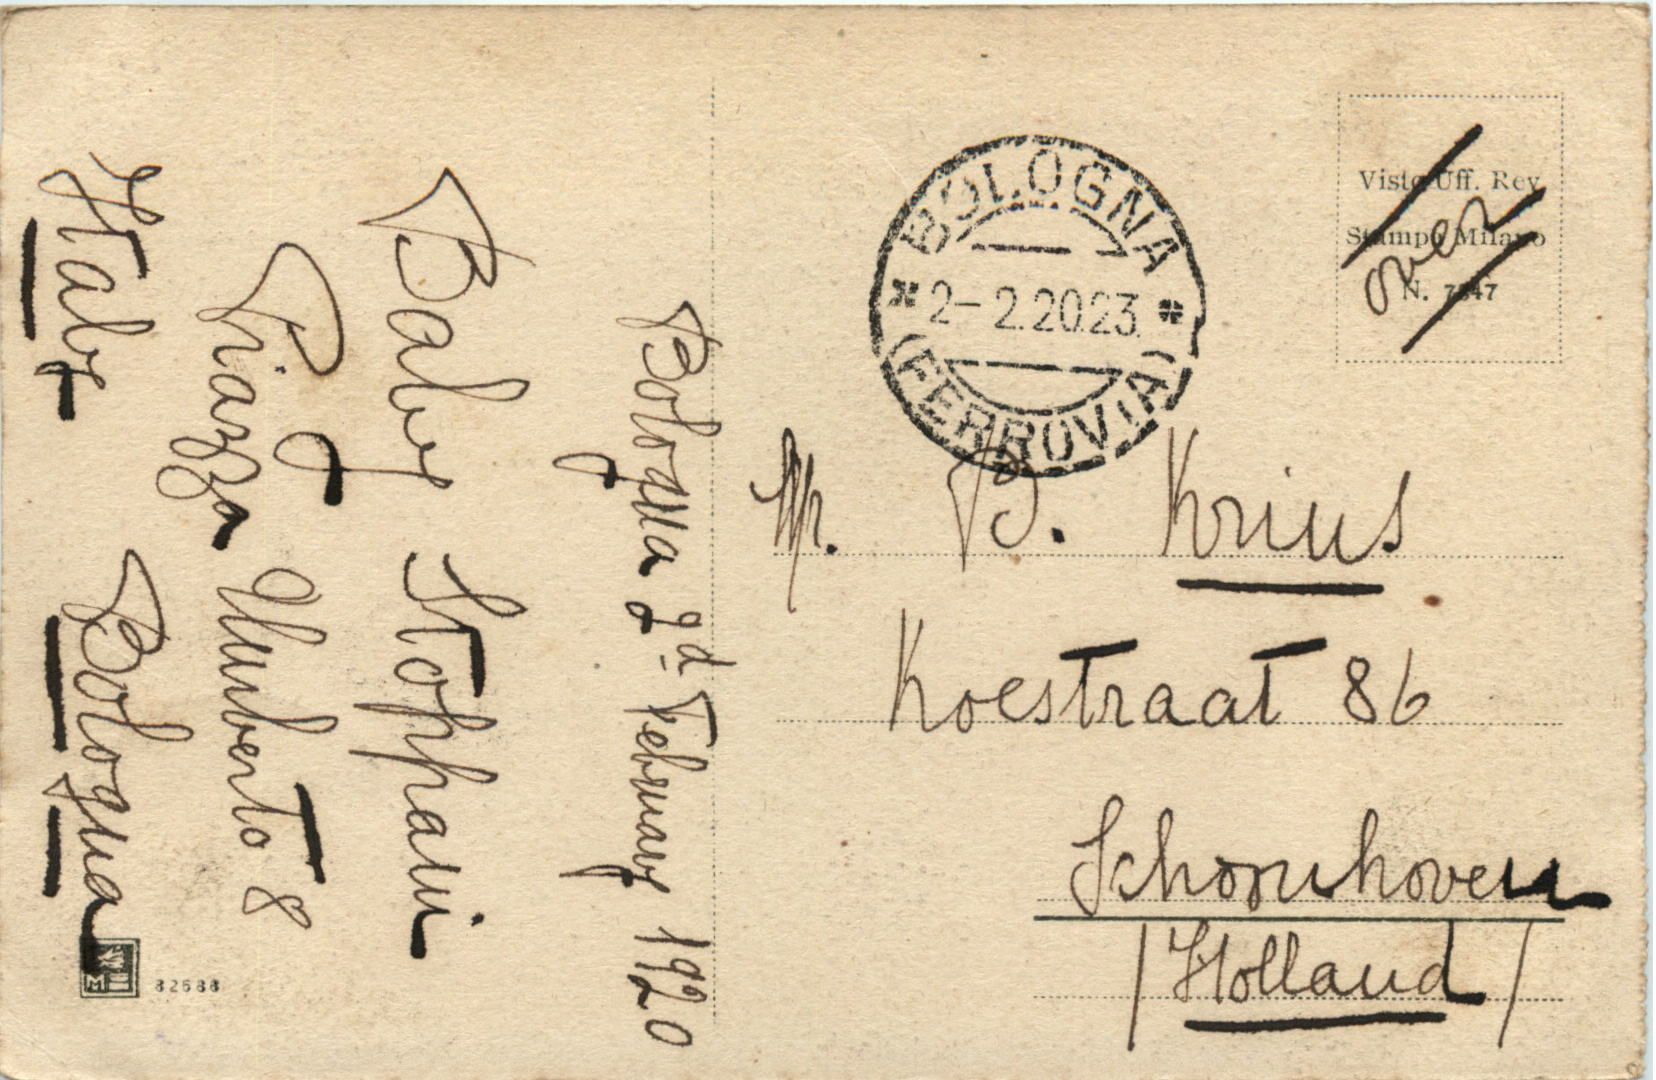 Bologna 2d February 1920
Baby Stoppani
Piazza Umberto 8
Italy Bologna
82688
BOLOGNA
2-2.20.23
(FERROVIA)
Visto Uff. Rev
Stampa Milano
N. 7247
over
Mr. B. Krius
Koestraat 86
Schoonhoven
(Holland)